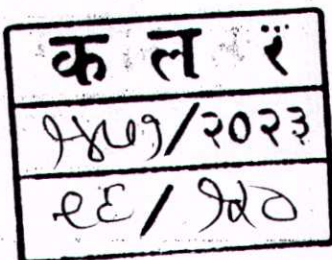 क ल रं
१४७१/२०२३
९६ / १४०